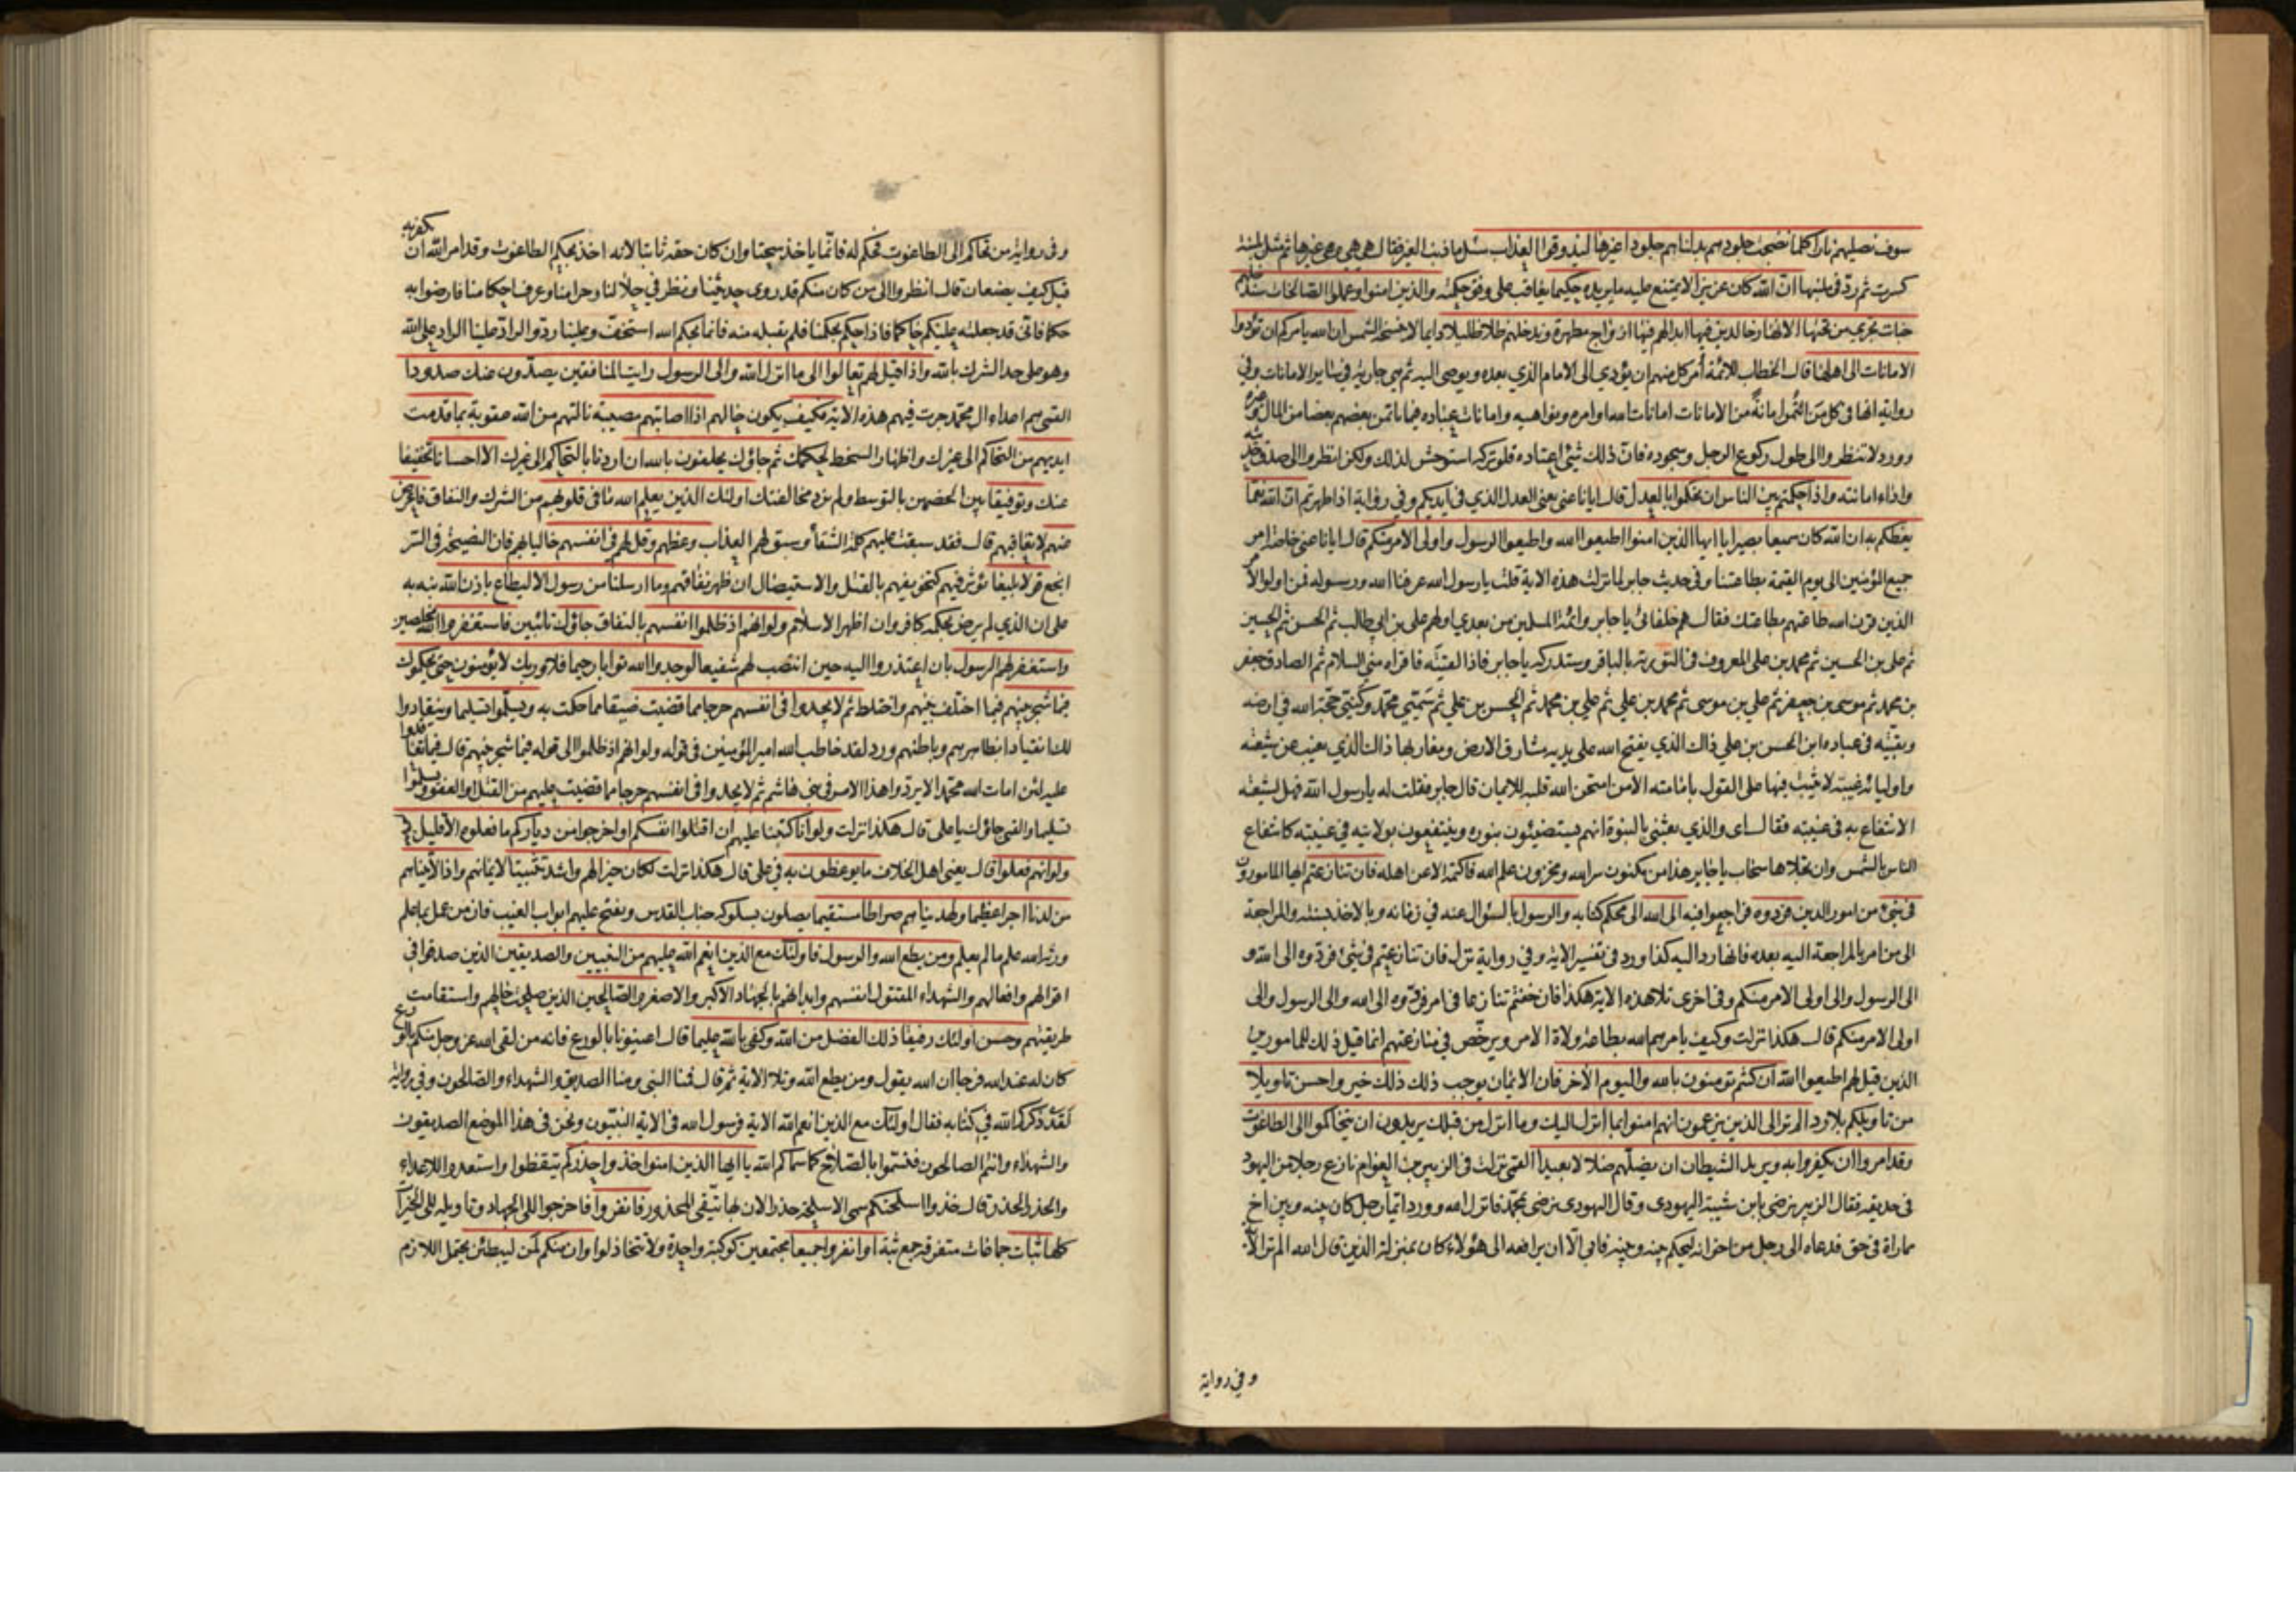 سوف نصليهم نارا كلما نضجت جلودهم بدلناهم جلودا غيرها ليذوقوا العذاب سئل ما ذنب الغير فقال هي هي وهي غيرها ثم مثل بلبنة
كسرت ثم ردت في ملبنها ان الله كان عزيزا لا يمتنع عليه ما يريده حكيما يعاقب على وفق حكمته والذين امنوا وعملوا الصالحات سندخلهم
جنات تجري من تحتها الانهار خالدين فيها ابدا لهم فيها ازواج مطهرة وندخلهم ظلا ظليلا دايما لا تنسخه الشمس ان الله يامركم ان تؤدوا
الامانات الى اهلها قال الخطاب للائمة أمر كل منهم ان يؤدي الى الامام الذي بعده ويوصى اليه ثم هي جارية في سايرالامانات وفي
رواية انها في كل من ائتمن امانة من الامانات امانات الله اوامره ونواهيه وامانات عباده فيما ياتمن بعضهم بعضا من المال وغيره
وورد لا تنظروا الى طول ركوع الرجل وسجوده فان ذلك شئ اعتاده فلو تركه استوحش لذلك ولكن انظروا الى صدق حديثه
واداء امانته واذا حكمتم بين الناس ان تحكموا بالعدل قال ايانا عنى يعنى العدل الذي في ايديكم وفي رواية اذا ظهرتم ان الله نعما
يعظكم به ان الله كان سميعا بصيرا يا ايها الذين امنوا اطيعوا الله واطيعوا الرسول واولى الامر منكم قال ايانا عنى خاصة امر
جميع المؤمنين الى يوم القيمة بطاعتنا وفي حديث جابر لما نزلت هذه الاية قلت يا رسول الله عرفنا الله ورسوله فمن اولوا الامر
الذين قرن الله طاعتهم بطاعتك فقال هم خلفائى يا جابر وائمة المسلمين من بعدي اولهم على بن ابي طالب ثم الحسن ثم الحسين
ثم على بن الحسين ثم محمد بن على المعروف في التورية بالباقر وستدركه يا جابر فاذا لقيته فاقراه منى السلام ثم الصادق جعفر
بن محمد ثم موسى بن جعفر ثم علي بن موسى ثم محمد بن علي ثم علي بن محمد ثم الحسن بن علي ثم سميي محمد وكنيتي حجة الله في ارضه
وبقيته في عباده ابن الحسن بن علي ذاك الذي يفتح الله على يديه مشارق الارض ومغاربها ذاك الذي يغيب عن شيعته
واوليائه غيبة لا يثبت فيها على القول بامامته الا من امتحن الله قلبه للايمان قال جابر فقلت له يا رسول الله فهل لشيعته
الانتفاع به في غيبته فقال اى والذي بعثنى بالنبوة انهم يستضيئون بنوره وينتفعون بولايته في غيبته كانتفاع
الناس بالشمس وان تجلاها سحاب يا جابر هذا من مكنون سر الله ومخزون علم الله فاكتمه الا عن اهله فان تنازعتم ايها المامورون
في شئ من امور الدين فردوه فراجعوا فيه الى الله الى محكم كتابه والرسول بالسؤال عنه في زمانه وبالاخذ بسنته والمراجعة
الى من امر بالمراجعة اليه بعده فانها رد اليه كذا ورد في تفسير الاية وفي رواية نزل فان تنازعتم في شئ فردوه الى الله و
الى الرسول والى اولى الامر منكم وفي اخرى تلا هذه الاية هكذا فان خفتم تنازعا في امر فردوه الى الله والى الرسول والى
اولى الامر منكم قال هكذا نزلت وكيف يامرهم الله بطاعة ولاة الامر ويرخص في منازعتهم انما قيل ذلك للمامورين
الذين قيل لهم اطيعوا الله ان كنتم تومنون بالله واليوم الآخر فان الايمان يوجب ذلك ذلك خير واحسن تاويلا
من تاويلكم بلا رد الم تر الى الذين يزعمون انهم امنوا بما أنزل اليك وما انزل من قبلك يريدون ان يتحاكموا الى الطاغوت
وقد امروا ان يكفروا به ويريد الشيطان ان يضلهم ضلالا بعيدا القمى نزلت في الزبير بن العوام نازع رجلا من اليهود
في حديقة فقال الزبير نرضى بابن شيبة اليهودي وقال اليهودي نرضى بمحمد فانزل الله وورد ايما رجل كان بينه وبين اخ
مماراة في حق فدعاه الى رجل من اخوانه ليحكم بينه وبينه فابى الا ان يرافعه الى هؤلاء كان بمنزلة الذين قال الله الم تر الاية
وفي رواية
وفي رواية من تحاكم الى الطاغوت فحكم له فانما ياخذ سحتا وان كان حقه ثابتا لانه اخذ بحكم الطاغوت وقد امر الله ان يكفر به
قيل كيف يصنعان قال انظروا الى من كان منكم قد روى حديثنا ونظر في حلالنا وحرامنا وعرف احكامنا فارضوا به
حكما فانى قد جعلته عليكم حاكما فاذا حكم بحكمنا فلم يقبله منه فانما بحكم الله استخف وعلينا رد والراد علينا الراد على الله
وهو على حد الشرك بالله واذا قيل لهم تعالوا الى ما انزل الله والى الرسول رايت المنافقين يصدون عنك صدودا
القمى هم اعداء ال محمد جرت فيهم هذه الاية فكيف يكون حالهم اذا اصابتهم مصيبة نالتهم من الله عقوبة بما قدمت
ايديهم من التحاكم الى غيرك واظهار السخط لحكمك ثم جاؤك يحلفون بالله ان اردنا بالتحاكم الى غيرك الا احسانا تخفيفا
عنك وتوفيقا بين الخصمين بالتوسط ولم نرد مخالفتك اولئك الذين يعلم الله ما في قلوبهم من الشرك والنفاق فاعرض
عنهم لا تعاقبهم قال فقد سبقت عليهم كلمة الشقاء وسبق لهم العذاب وعظهم وقل لهم في انفسهم خاليا بهم فان النصيحة في السر
انجع قولا بليغا يؤثر فيهم كتخويفهم بالقتل والاستيصال ان ظهر نفاقهم وما ارسلنا من رسول الا ليطاع باذن الله نبه به
على ان الذي لم يرض بحكمه كافر وان اظهر الاسلام ولو انهم اذ ظلموا انفسهم بالنفاق جاؤك تائبين فاستغفروا الله مخلصين
واستغفر لهم الرسول بان اعتذروا اليه حين انتصب لهم شفيعا لوجدوا الله توابا رحيما فلا وربك لا يؤمنون حتى يحكموك
فيما شجر بينهم فيما اختلف بينهم واختلط ثم لا يجدوا في انفسهم حرجا مما قضيت ضيقا مما حكمت به ويسلموا تسليما وينقادوا
لك انقيادا بظاهرهم وباطنهم ورد لقد خاطب الله امير المؤمنين في قوله ولو انهم اذ ظلموا الى قوله فيما شجر بينهم قال فيما تعاقدوا
عليه لئن امات الله محمدا لا يردوا هذا الامر في بني هاشم ثم لا يجدوا في انفسهم حرجا مما قضيت عليهم من القتل او العفو ويسلموا
تسليما والقمى جاؤك يا على قال هكذا نزلت ولو انا كتبنا عليهم ان اقتلوا انفسكم او اخرجوا من دياركم ما فعلوه الا قليل منهم
ولو انهم فعلوا قال يعنى اهل الخلاف ما يوعظون به في على قال هكذا نزلت لكان خيرا لهم واشد تثبيتا لايمانهم واذا لآتيناهم
من لدنا اجرا عظيما ولهديناهم صراطا مستقيما يصلون بسلوكه جناب القدس ويفتح عليهم ابواب الغيب فان من عمل بما علم
ورثه الله علم ما لم يعلم ومن يطع الله والرسول فاولئك مع الذين انعم الله عليهم من النبيين والصديقين الذين صدقوا في
اقوالهم وافعالهم والشهداء المقتول انفسهم وابدانهم بالجهاد الاكبر والاصغر والصالحين الذين صلحت حالهم واستقامت
طريقتهم وحسن اولئك رفيقا ذلك الفضل من الله وكفى بالله عليما قال اعينونا بالورع فانه من لقى الله عز وجل منكم بالورع
كان له عند الله فرجا ان الله يقول ومن يطع الله وتلا الاية ثم قال فمنا النبي ومنا الصديق والشهداء والصالحون وفي رواية
لقد ذكركم الله في كتابه فقال اولئك مع الذين انعم الله الاية فرسول الله في الاية النبيون ونحن في هذا الموضع الصديقون
والشهداء وانتم الصالحون فتسموا بالصلاح كما سماكم الله يا ايها الذين امنوا خذوا حذركم تيقظوا واستعدوا للاعداء
والحذر الحذر قال خذوا اسلحتكم سمى الاسلحة حذرا لان بها يتقى المحذور فانفروا فاخرجوا الى الجهاد وتاويله الى الخيرات
كلها ثبات جماعات متفرقة جمع ثبة او انفروا جميعا مجتمعين كوكبة واحدة ولا تتخاذلوا وان منكم لمن ليبطئن يحتمل اللازم